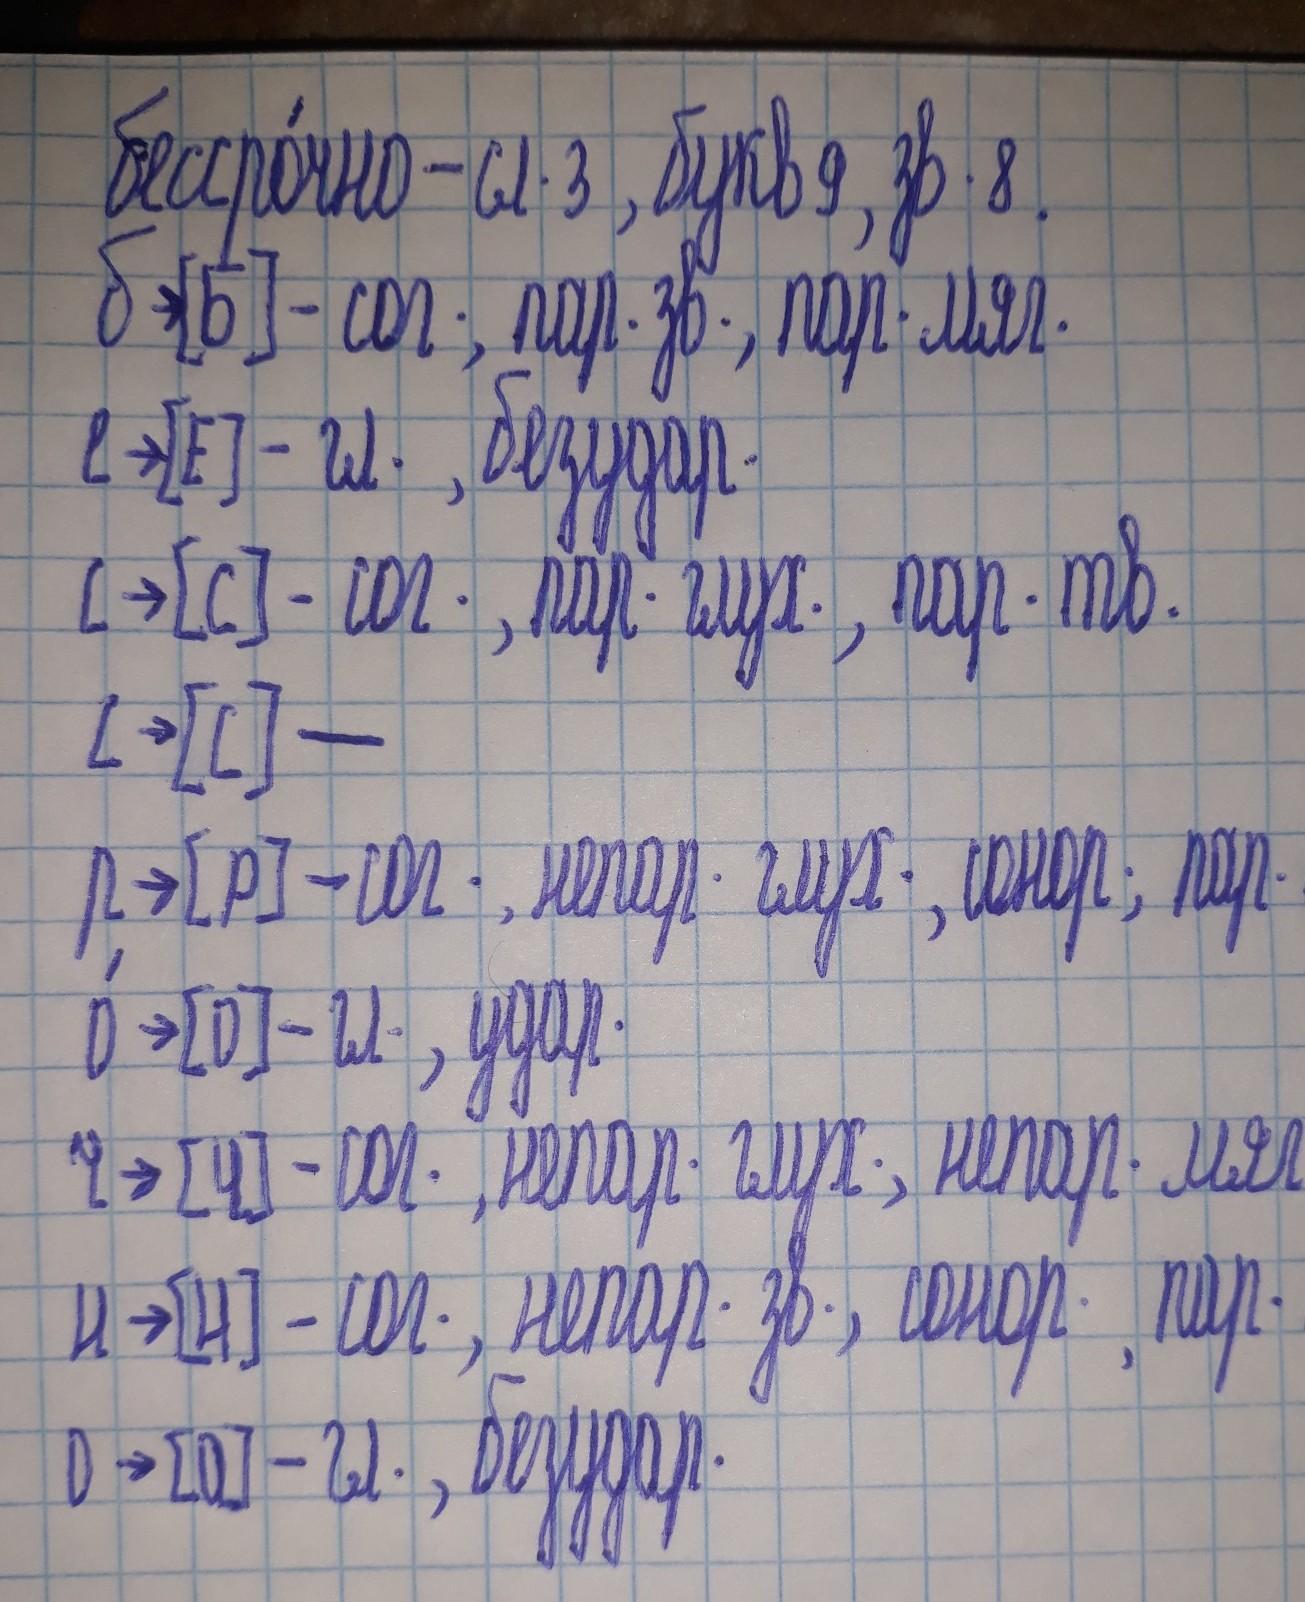 бессро́чно – сл. 3, букв 9, зв. 8.
б → [Б] – сог., пар. зв., пар. мяг.
е → [Е] – гл., безудар.
с → [С] – сог., пар. глух., пар. тв.
с → [С] —
р → [Р] – сог., непар. глух., сонор., пар.
о́ → [О] – гл., удар.
ч → [Ч] – сог., непар. глух., непар. мяг
н → [Н] – сог., непар. зв., сонор., пар.
о → [О] – гл., безудар.